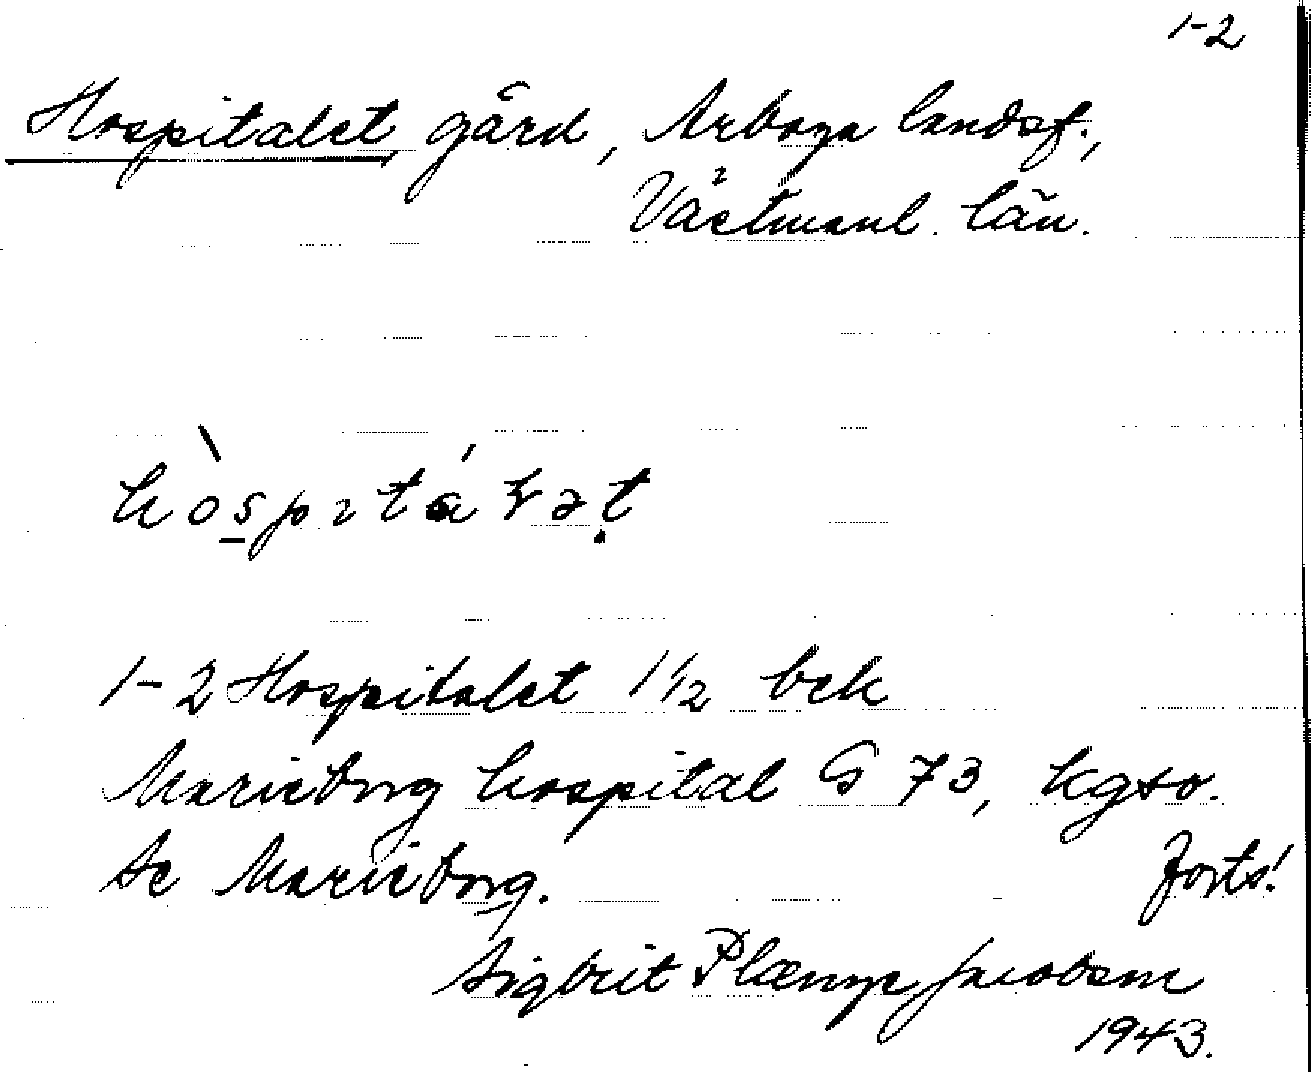 1-2
Hospitalet, gård, Arboga landsf.,
Västmanl. län.
hòspɪtáɽət
1-2 Hospitalet 1 1/2 bek
Marieborg hospital G 73, kgso.
Se Marieborg. forts!
Sigbrit Plænge Jacobson
1943.